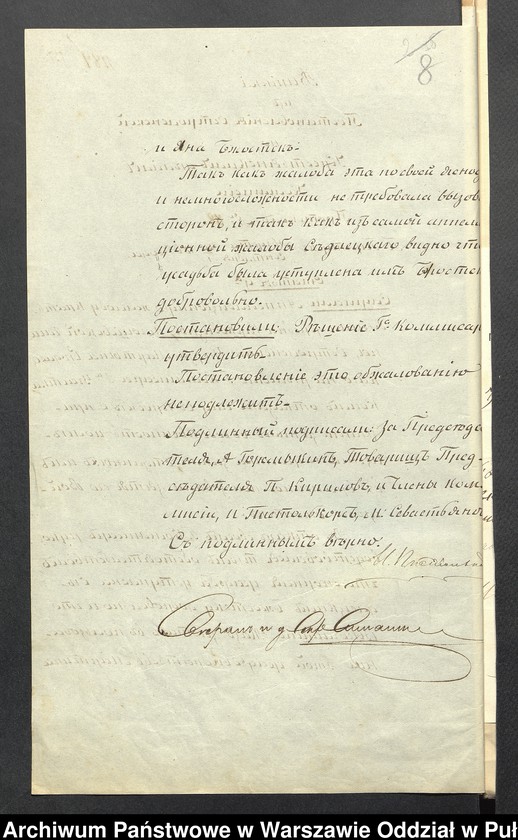 8
и Яна Бжостекъ.
Такъ какъ жалоба эта по своей яснос
и немногосложности не требовала вызов
сторонъ, и такъ какъ изъ самой аппеля
ціонной жалобы Съдлецкаго видно что
усадьба была уступлена имъ Бжосте
добровольно.
Постановили: Рѣшеніе Г. Комиссар
утвердить.
Постановленіе это обжалованію
неподлежитъ.
Подлинный подписали: За Предсѣда
теля, А Гремыкинъ, Товарищъ Пред-
сѣдателя П. Кириловъ, и Члены Ком-
мисіи, И Пистолькорсъ, М. Севастьянов
Съ подлиннымъ вѣрно.
Archiwum Państwowe w Warszawie Oddział w Puł